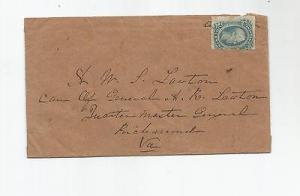 W. S. Lawton
Care of General A. R. Lawton
Quarter Master General
Richmond
Va